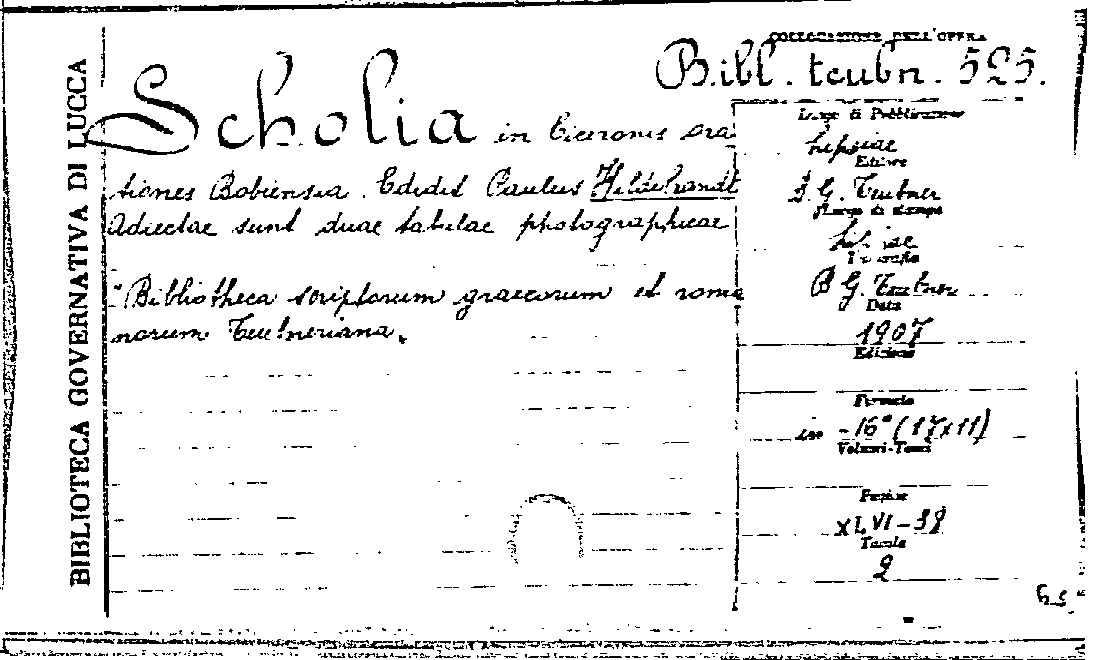 BIBLIOTECA GOVERNATIVA DI LUCCA
COLLOCAZIONE DELL'OPERA
Bibl. teubn. 525.
Scholia in Ciceronis ora
tiones Bobiensia. Edidit Paulus Hildebrandt
Adiectae sunt duae tabulae photographicae
"Bibliotheca scriptorum graecorum et roma
norum Teubneriana.
Luogo di Pubblicazione
Lipsiae
Editore
B. G. Teubner
Luogo di stampa
Lipsiae
Tipografia
B G. Teubner
Data
1907
Edizione
Formato
in -16° (17x11)
Volumi-Tomi
Pagine
XLVI-
Tavole
2